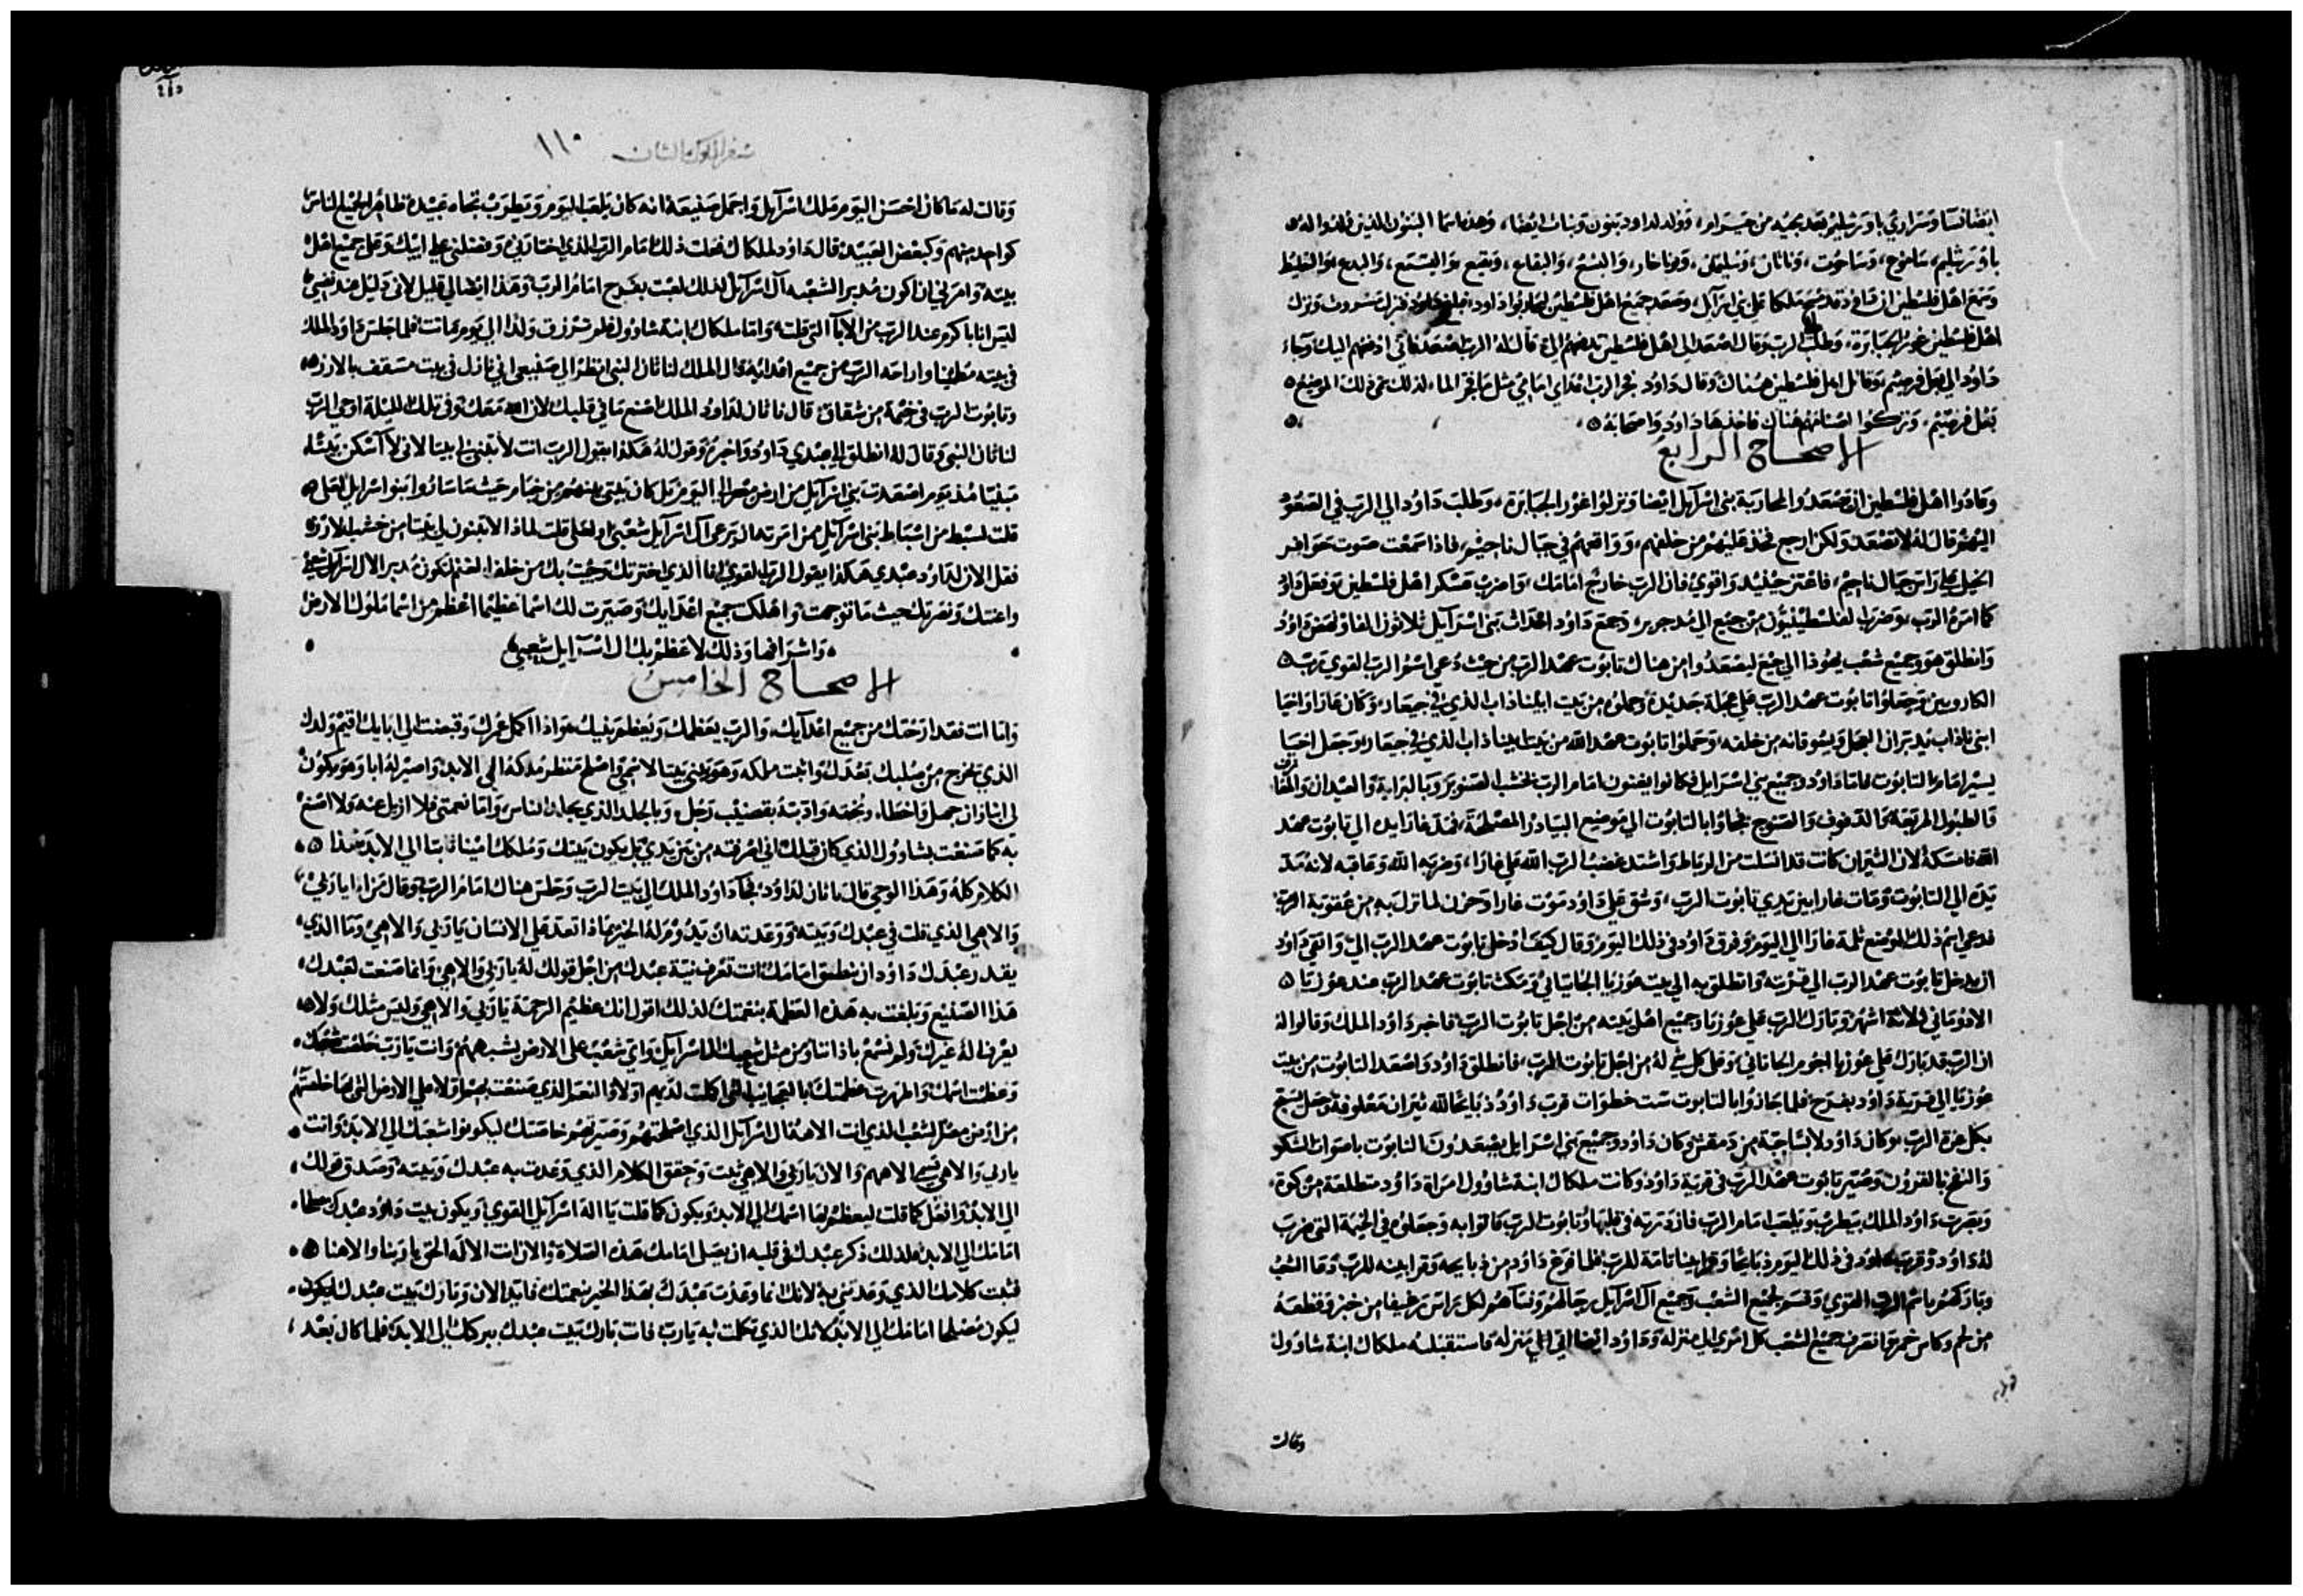 ايضا نسا وسراري باورشليم بعد مجيه من حبرام، وولد لداود بنون وبنات ايضا، وهذه اسما البنون الذين ولدوا له
باورشليم، ساموع، وساحوت، وناثان، وسليمن، ويوناخار، واليشع، والبفاع، ويقيع، واليسمع، واليدع، واليفلط
وسمع اهل فلسطين ان داود قد مسح ملكا على بني اسرآيل، وصعد جميع اهل فلسطين ليحاربوا داود فبلغ داود فنزل ونزل
اهل فلسطين غور الجبابرة، وطلب الرب وقال اصعد الى اهل فلسطين تدفعهم الي، قال له الرب اصعد فاني ادفعهم اليك، وجاء
داود الى بعل فرصيم، وقاتل اهل فلسطين هناك، وقال داود فجر الرب اعداي امامي مثل ما فجر الماء لذلك سمى ذلك الموضع
بعل فرصيم، وتركوا اصنامهم هناك فاخذها داود واصحابه
الاصحاح الرابع
وعادوا اهل فلسطين ان يصعدوا لمحاربة بني اسرآيل ايضا ونزلوا غور الجبابرة، وطلب داود الي الرب في الصعود
اليهم قال له لا تصعد ولكن ارجع فخذ عليهم من خلفهم، وواقعهم في جبال ناحيم، فاذا سمعت صوت حوافر
الخيل على راس جبال ناحيم، فاعتز حينيد واقوي فان الرب خارج امامك، واضرب عسكر اهل فلسطين، وفعل داود
كما امره الرب، وضرب الفلسطينيون من جبع الى مدجرير، وجمع داود احداث بني اسرآيل ثلاثون الفا ونهض داود
وانطلق هو وجميع شعب يهوذا الى جبع ليصعدوا من هناك تابوت عهد الرب من حيث دعي اسم الرب القوي ترب
الكاروبين وجعلوا تابوت عهد الرب على عجلة جديدة وحملوه من بيت ابيناذاب الذي في جبعاد، وكان غازا واخيا
ابني ناذاب يدبران العجل ويسوقانه من خلفه، وحملوا تابوت عهد الله من بيت ابيناذاب الذي في جبعاد، وجعل اخيا
يسير امام التابوت فاما داود وجميع بني اسرايل فكانوا يغنون امام الرب بخشب الصنوبر وبالبرابة والعيدان والمعازف
والطبول المربعة والدفوف والصنوج فجاوا بالتابوت الى موضع البيادر المصلحة، فمد غازا يده الى تابوت عهد
الله فامسكه لان الثيران كانت قد انسلت من الرباط واشتد غضب الرب الله على غازا، وضربه الله وعاقبه لانه مد
يده الى التابوت ومات غازا بين يدي تابوت الرب، وشق على داود موت غازا وحزن لما نزل به من عقوبة الرب
فدعي اسم ذلك الموضع ثلمة غازا الى اليوم وفرق داود في ذلك اليوم وقال كيف ادخل تابوت عهد الرب الي، واتقى داود
ان يدخل تابوت عهد الرب الى قريته وانطلق به الى بيت عوزيا الجاتياني ومكث تابوت عهد الرب عند عوزيا
الادوماني ثلاثة اشهر، وبارك الرب على عوزيا وجميع اهل بيته من اجل تابوت الرب، فاخبر داود الملك وقالوا له
ان الرب قد بارك على عوزيا الجاثاني، وعلى كل شي له من اجل تابوت الرب، فانطلق داود واصعد التابوت من بيت
عوزيا الى قرية داود بفرح، فلما جازوا بالتابوت ست خطوات قرب داود ذبايحا لله ثيران معلوفة، وجعل يسبح
بكل عزة الرب، وكان داود لابسا جبة من دمقس وكان داود وجميع بني اسرايل يصعدون التابوت باصوات الشكر
والنفخ بالقرون، وصير تابوت عهد الرب في قرية داود وكانت ملكال ابنة شاوول امراة داود متطلعة من كوة،
وبصرت داود الملك يطرب ويلعب امام الرب فازدرته في قلبها، وتابوت الرب فاتوا به وجعلوه في الخيمة التى ضرب
له داود وقرب داود في ذلك اليوم ذبايحا وقرابينا تامة للرب، فلما فرغ داود من ذبايحه وقرابينه للرب، دعا الشعب
وباركهم باسم الرب القوي، وقسم لجميع الشعب وجميع آل اسرايل رجالهم ونسآهم لكل راس رغيفا من خبز وقطعة
من لحم وكاس خمر، وانصرف جميع الشعب كل امرئ الى منزله، وداود ايضا اتي الى منزله فاستقبلته ملكال ابنة شاوول
وقالت
سفر الملوك الثاني ١١٠
وقالت له ما كان احسن اليوم ملك اسرآيل واجمل صنيعه، انه كان يلعب اليوم ويطرب تجاه عبيده ظاهرا لجميع الناس
كواحد منهم وكبعض العبيد، قال داود لملكال فعلت ذلك امام الرب الذي اختارني وفضلني على ابيك وعلى جميع اهل
بيته وامرني ان اكون مدبرا لشعبه آل اسرآيل لذلك لعبت بفرح امام الرب، وهذا ايضا لي قليل لاني ذليل عند نفسي
ليس انا باكرم عند الرب من الابآ التى قلت، واما ملكال ابنة شاوول فلم ترزق ولدا الى يوم ماتت، فلما جلس داود الملك
في بيته مطمينا واراحه الرب من جميع اعدائه، قال الملك لناثان النبي انظر الى صنيعى اني نازل في بيت مسقف بالارز،
وتابوت الرب في خيمة من شقاق، قال ناثان لداود الملك اصنع ما في قلبك لان الله معك، وفي تلك الليلة اوحي الرب
لناثان النبي وقال له انطلق الى عبدي داود واخبره وقول له هكذا يقول الرب انت لا تبني لي بيتا لاني لا اسكن بيتا
مبنيا مذ يوم اصعدت بني اسرآيل من ارض مصر الي اليوم بل كان خيام حيث ما ساروا بنو اسرايل لعل
قلت لسبط من اسباط بني اسرآيل ممن امرته ان يرعى آل اسرآيل شعبي، او لعلى قلت لماذا لا تبنون لي بيتا من خشب الارز،
فقل الان لداود عبدي هكذا يقول الرب القوي انا الذي اخترتك وجيت بك من خلف الغنم لتكون مدبر الال اسرآيل شعبي
واعنتك ونصرتك حيث ما توجهت، واهلكت جميع اعدايك وصيرت لك اسما عظيما اعظم من اسما ملوك الارض
واشرافها وذلك لاعظم بك ال اسرآيل شعبي
الاصحاح الخامس
وانا انت فقد ارحتك من جميع اعدآيك، والرب يعظمك ويعظم بنيك، واذا اكمل عمرك وقبضت الى ابايك اقيم ولدك
الذي يخرج من صلبك بعدك، واثبت ملكه وهو يبني بيتا لاسمي، واصلح منظر ملكه الى الابد، واصير له ابا وهو يكون
لى ابنا، وان جهل واخطاء، ونخته وادبته بقضيب رجل، وبالجلد الذي يجلد الناس، واما نعمتي فلا ازيل عنه ولا اصنع
به كما صنعت بشاوول الذي كان قبلك انى اصرفته من بين يدي بل يكون بيتك وملكك امينا ثابتا الى الابد، هذا
الكلام كله وهذا الوحي قال ناثان لداود، فجآ داود الملك الى بيت الرب وجلس هناك امام الرب، وقال من انا يا ربي،
والاهي الذي قلت في عبدك وبيته، ووعدته ان يدوم له الخير، بماذا تعد على الانسان يا ربي والاهي، وما الذي
يقدر عبدك داود ان ينطق امامك، انت تعرف نية عبدك من اجل قولك له يا ربي والاهي، وانما صنعت لعبدك
هذا الصنيع وبلغت به هذه العظمة بنعمتك لذلك اقول انك عظيم الرحمة يا ربي والاهي، وليس مثلك ولا
يعرف اله غيرك، ولم نسمع باذاننا، ومن مثل شعبك ال اسرآيل، واي شعب على الارض يشبههم، وانت يا رب خلصت شعبك
وعظمت اسمك واظهرت عظمتك بالعجايب التى اكملت لديهم اولا، والنعم الذي صنعت بمصر، ولا على الارض التى بها خلصتهم
من ارض مصر الشعب الذي انت الاه ال اسرآيل الذي اصلحتهم، وصيرتهم خاصتك ليكونوا شعبك الى الابد، وانت
يا ربي والاهي تسمى الاههم، والان يا ربي والاهي ثبت وحقق الكلام الذي وعدت به عبدك وبيته، وصدق قولك،
الى الابد، وافعل كما قلت ليعظم بها اسمك الى الابد، ويكون كما قلت يا اله اسرآيل القوي، ويكون بيت داود عبدك مصلحا
امامك الى الابد، فلذلك ذكر عبدك في قلبه ان يصلى امامك هذه الصلاة، والان انت الاله الحق يا ربنا والاهنا
فثبت كلامك الذي وعدتني به، لانك انما وعدت عبدك بهذا الخير بنعمتك، فابد الان وبارك بيت عبدك ليكون
ليكون مصلحا امامك الى الابد، لانك الذي تكلمت به يا رب فانت بارك بيت عبدك ببركتك الى الابد، فلما كان بعد،